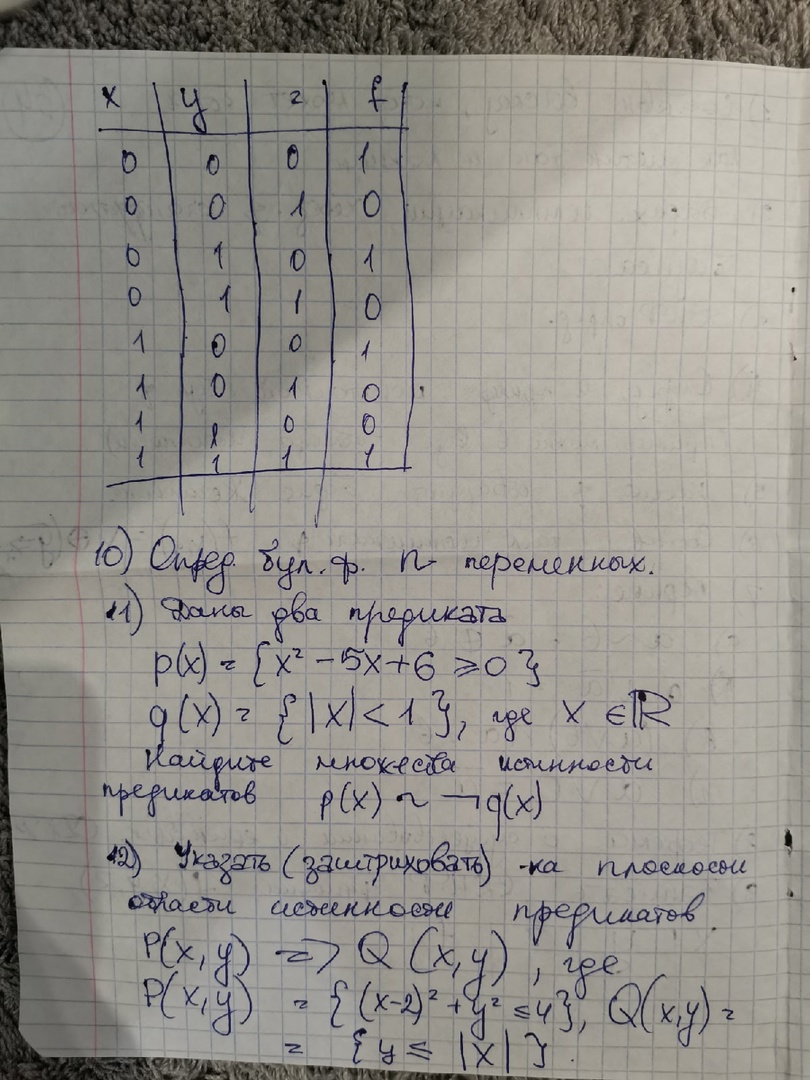 x y z f
0 0 0 1
0 0 1 0
0 1 0 1
0 1 1 0
1 0 0 1
1 0 1 0
1 1 0 0
1 1 1 1
10) Опред. бул. ф. n - переменных.
11) Даны два предиката
p(x) = {x² - 5x + 6 ⩾ 0}
q(x) = {|x| < 1}, где x ∈ ℝ
Найдите множества истинности
предикатов p(x) ~ ¬q(x)
12) Указать (заштриховать) на плоскости
области истинности предикатов
P(x, y) => Q(x, y), где
P(x, y) = {(x-2)² + y² ≤ 4}, Q(x,y) =
= {y ≤ |x|}.